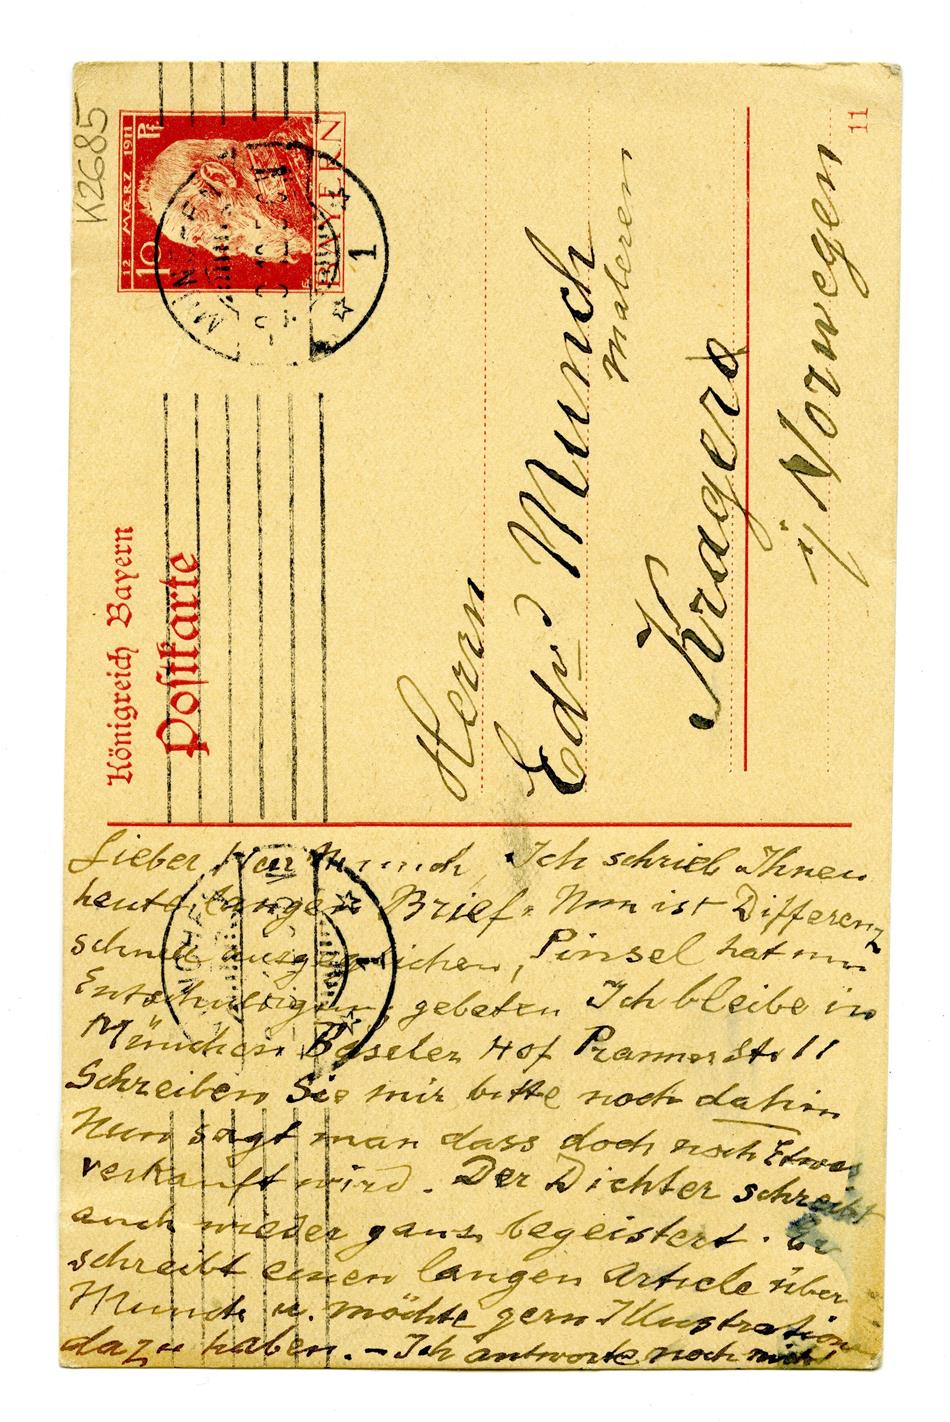 K2685
12 MÆRZ 1911
10 Pf
BAYERN
MÜNCHEN
1
Königreich Bayern
Postkarte
11
Herrn
Edv Munch
maleren
Kragerö
i/ Norwegen
Lieber Herr Munch, Ich schrieb Ihnen
heute langen Brief. Nun ist Differenz
schnell ausgeglichen, Pinsel hat um
Entschuldigung gebeten Ich bleibe in
München Baseler Hof Prannerstr 11
Schreiben Sie mir bitte noch dahin
Nun sagt man dass doch noch Etwas
verkauft wird. Der Dichter schreibt
auch wieder ganz begeistert. Er
schreibt einen langen Article über
Munch u. möchte gern Illustration
dazu haben. – Ich antworte noch nicht